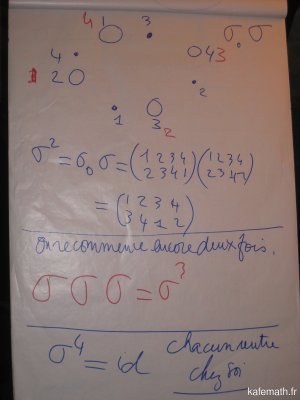 4 1 3
4 43 σ σ
1 2
2
1 3
2
σ² = σ o σ = (1 2 3 4 / 2 3 4 1) (1 2 3 4 / 2 3 4 1)
= (1 2 3 4 / 3 4 1 2)
on recommence encore deux fois.
σ σ σ = σ³
σ⁴ = id chacun rentre
chez soi
kafemath.fr